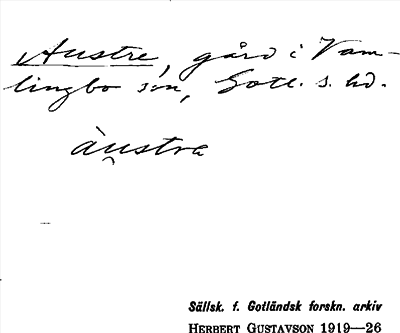 Austre, gård i Vam-
lingbo sn, Gotl. s. hd.
àu̯stra
Sällsk. f. Gotländsk forskn. arkiv
HERBERT GUSTAVSON 1919—26